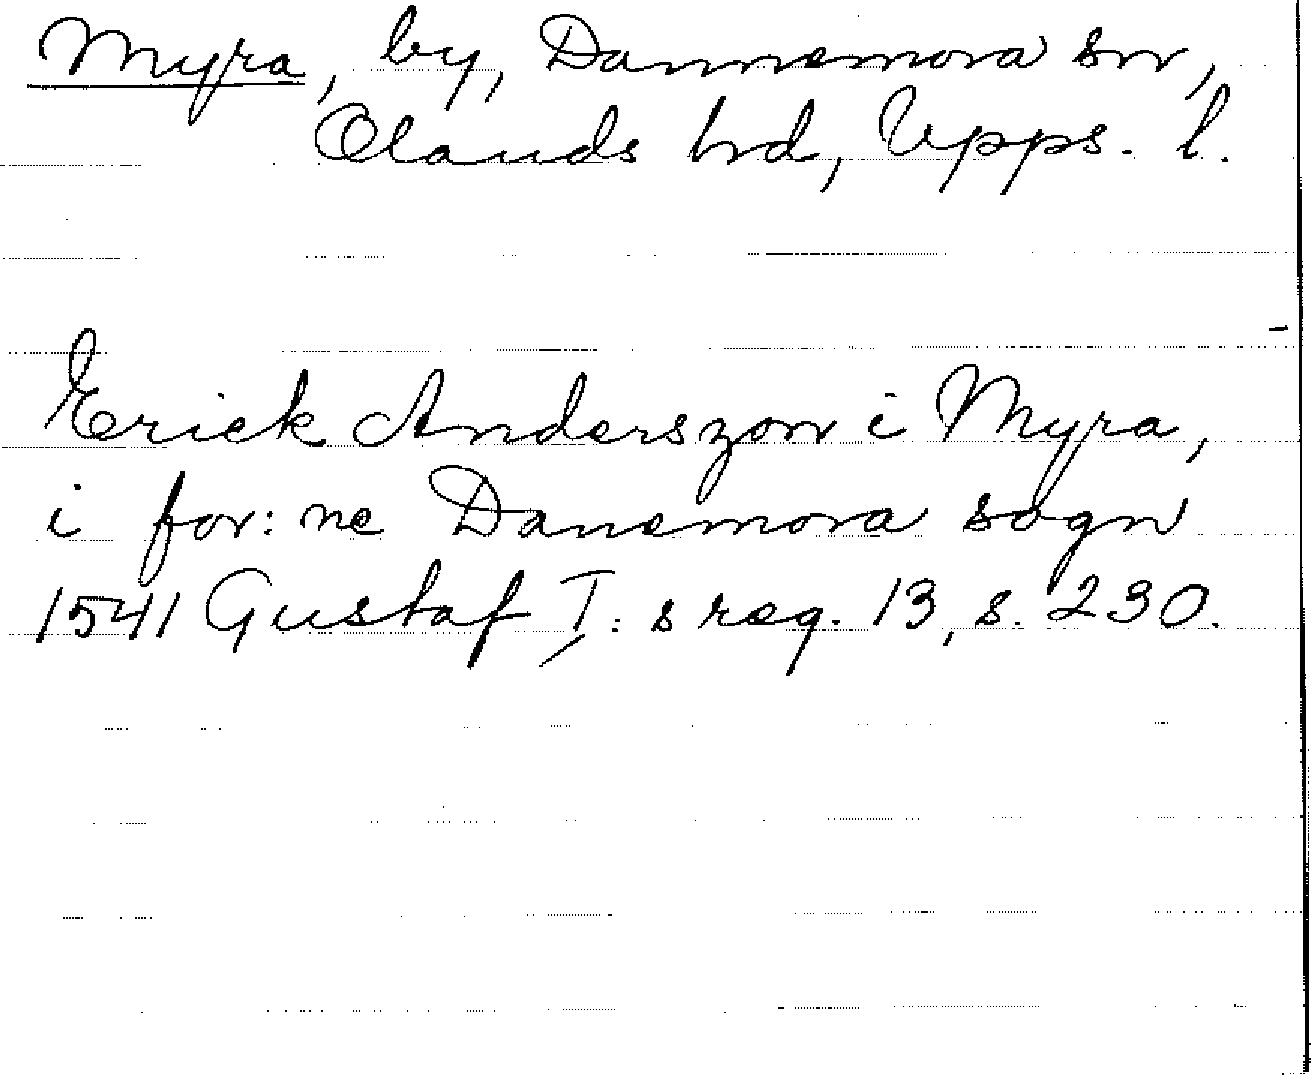 Myra, by, Dannemora sn,
Olands hd, Upps. l.
Erick Anderszon i Myra,
i for: ne Danemora sogn
1541 Gustaf I: s reg. 13, s. 230.